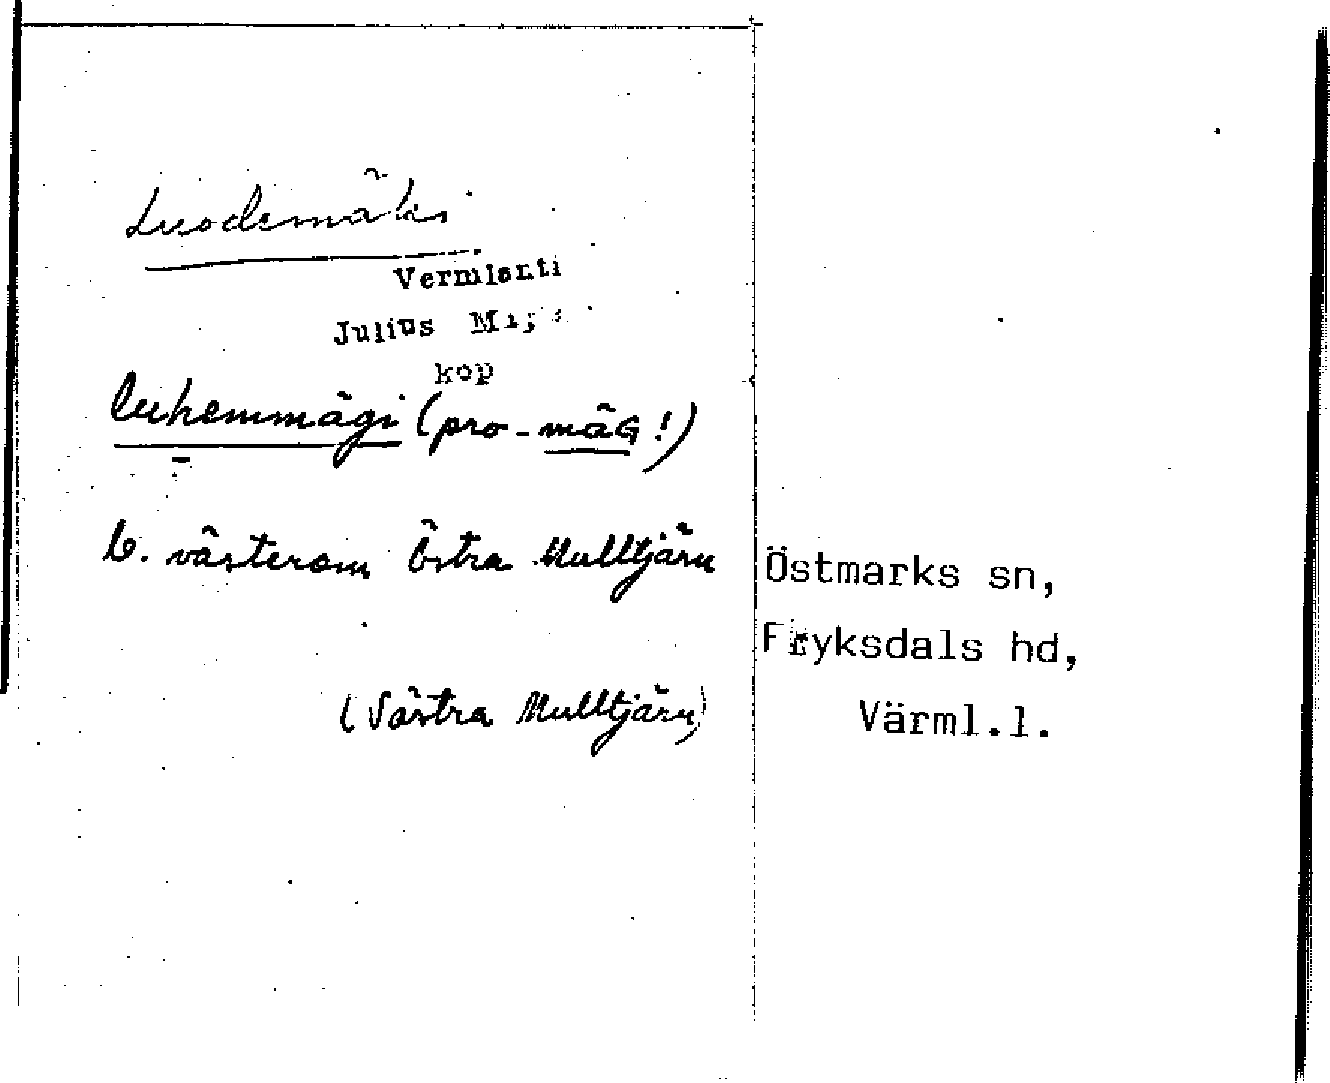 Luodemäki
Vermlanti
Julius
kop
luhemmägi (pro -mäG!)
b. västerom Östra Mulltjärn
(Västra Mulltjärn)
Östmarks sn,
Fryksdals hd,
Värml.l.